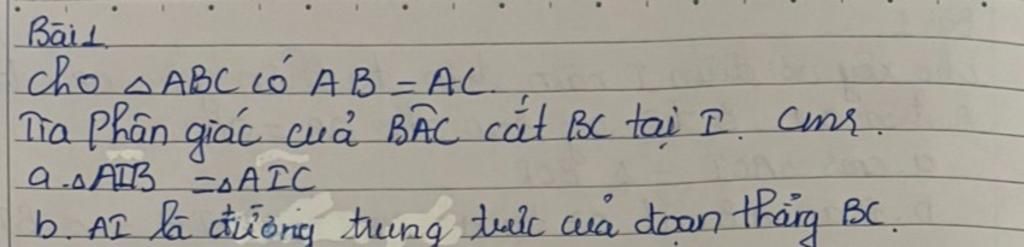 Bài 1
Cho △ABC có AB = AC.
Tia Phân giác cuả BÂC cắt BC tại I. Cmr.
a. △AIB = △AIC
b. AI là đường trung trực cuả đoạn thẳng BC.